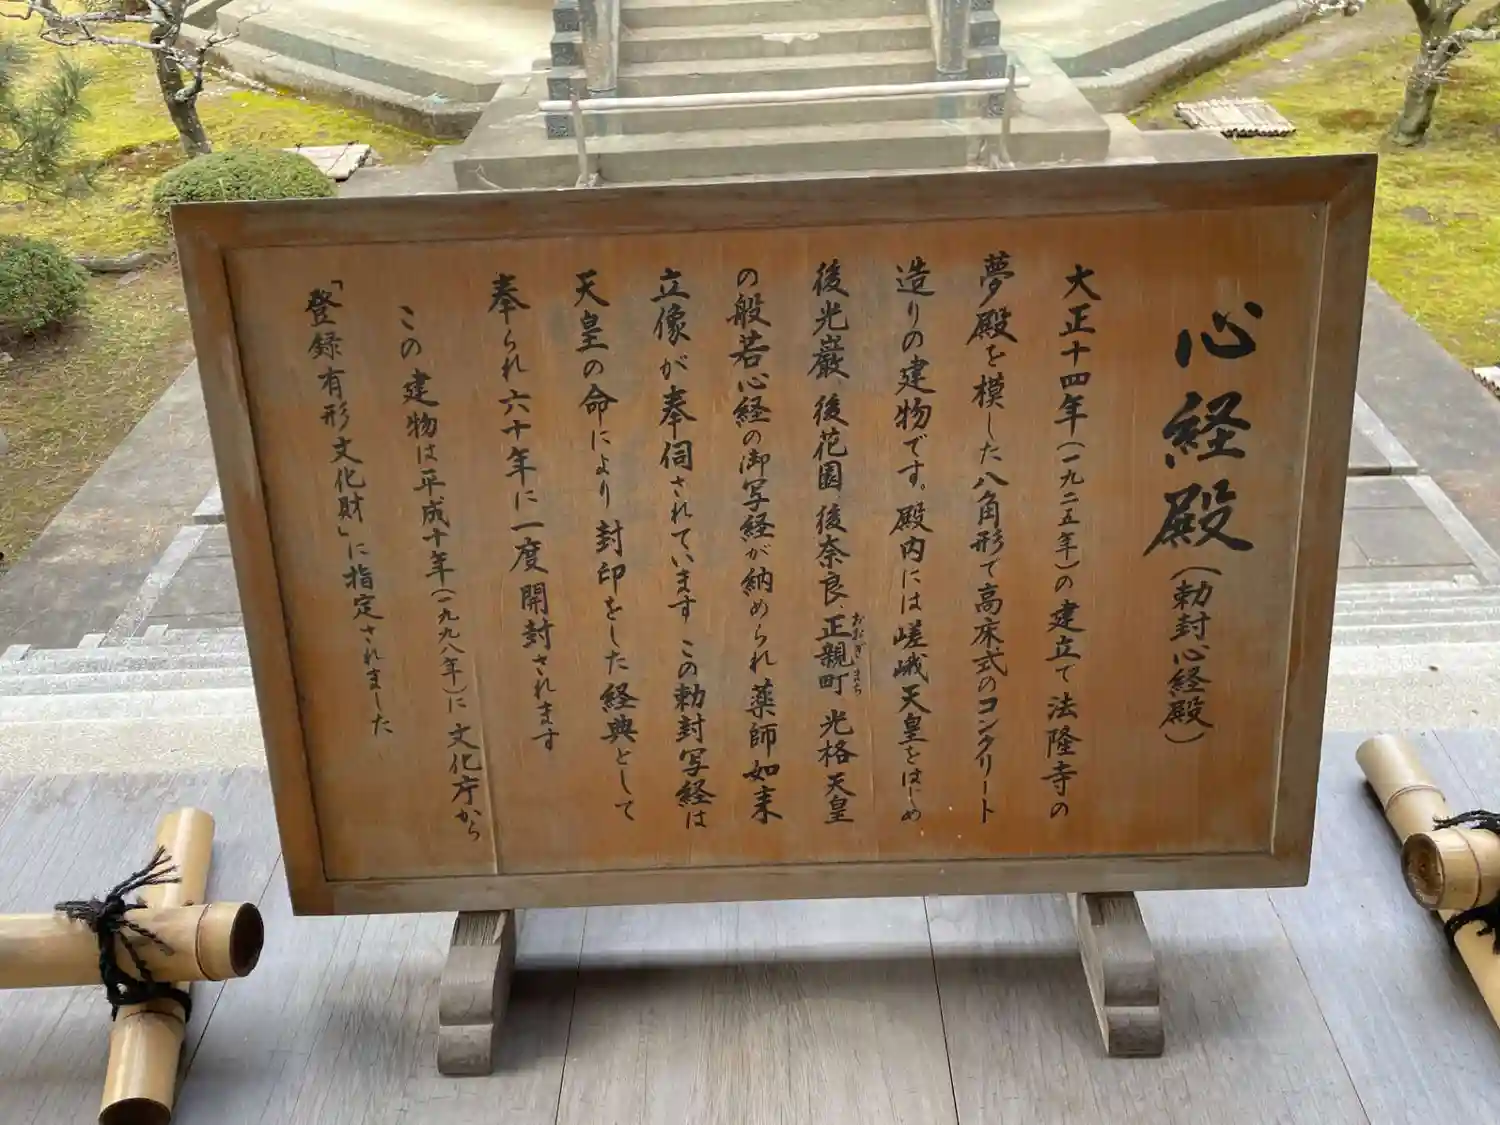 心経殿(勅封心経殿)
大正十四年(一九二五年)の建立で法隆寺の
夢殿を模した八角形で高床式のコンクリート
造りの建物です。殿内には嵯峨天皇をはじめ
後光厳、後花園、後奈良、正親町 光格天皇
おおぎまち
の般若心経の御写経が納められ薬師如来
立像が奉伺されています この勅封写経は
天皇の命により封印をした経典として
奉られ六十年に一度開封されます
この建物は平成十年(一九九八年)に文化庁から
「登録有形文化財」に指定されました